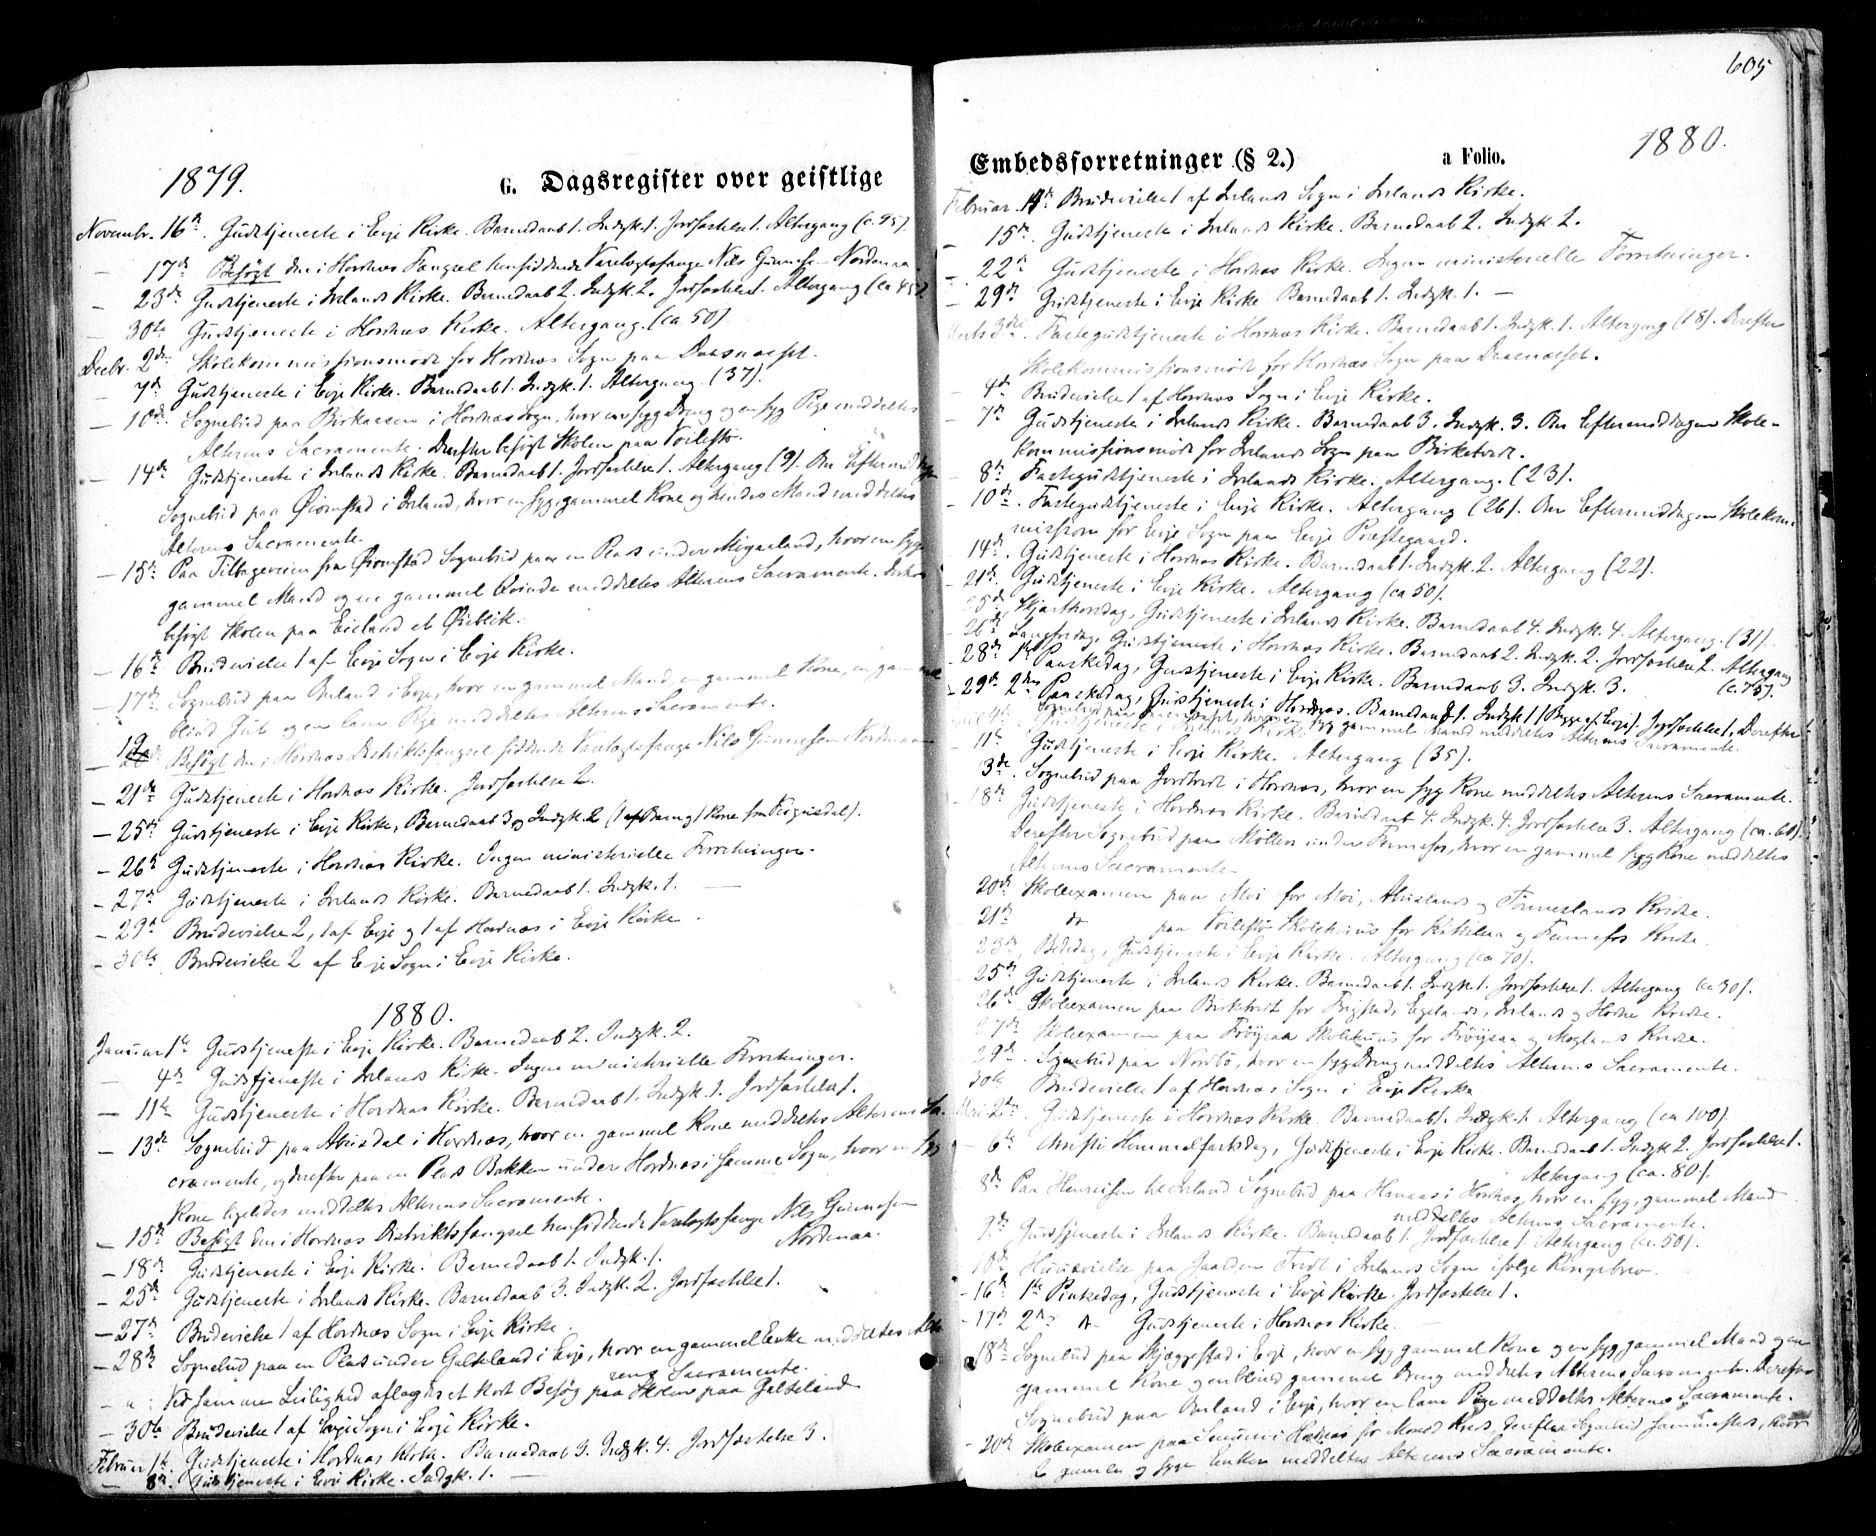 1879.
G. Dagsregister over geistlige
Novembr. 16de. Gudstjeneste i Evje Kirke. Barnedaab 1. Indgk. 1. Jordfæstelse 1. Altergang (c. 45).
— 17de Besøgt den i Hordnæs Fængsel hensiddende Varetægtsfange Nils Gunnesen Nordenaa
— 23de Gudstjeneste i Iveland Kirke. Barnedaab 2. Indgk. 2. Jordfæstelse 1. Altergang (ca 45).
— 30te Gudstjeneste i Hordnæs Kirke. Altergang. (ca 50).
Decbr. 2den Skolekommissionsmøde for Hordnæs Sogn paa Daasnæset.
— 7de Gudstjeneste i Evje Kirke. Barnedaab 1. Indgk. 1. Altergang. (37).
— 10de Sognebud paa i Hordnæs Sogn, hvor en syg Dreng og en syg Pige meddeltes
Alterens Sacramente. Derefter besøgt Skolen paa Voilestø.
— 14de Gudstjeneste i Iveland Kirke. Barnedaab 1. Jordfæstelse 1. Altergang (9). Om Eftermiddagen
Sognebud paa Øiomstad i Iveland, hvor en syg, gammel Kone og hendes Mand meddeltes
Alterens Sacramente.
— 15de Paa Tilbageveien fra Øiomstad Sognebud paa en Plads under, hvor en syg
gammel Mand og en gammel Qvinde meddeltes Alterens Sacramente. Derefter
besøgt Skolen paa Eieland et Øieblik.
— 16de Brudevielse 1 af Evje Sogn i Evje Kirke.
— 17de Sognebud paa i Evje, hvor en gammel Mand, en gammel Kone, en gammel
blind og en lam Pige meddeltes Alterens Sacramente.
— 19de Besøgt den i Hordnæs Distriktsfængsel siddende Varetægtsfange Nils Gunnesen Nordenaa
— 21de Gudstjeneste i Hordnæs Kirke. Jordfæstelse 2.
— 25de Gudstjeneste i Evje Kirke, Barnedaab 3 og Indgk. 2
— 26de Gudstjeneste i Hordnæs Kirke. Ingen ministerielle Forretninger.
— 27de Gudstjeneste i Ivelands Kirke. Barnedaab 1. Indgk. 1. —
— 29de Brudevielse 2, 1 af Evje og 1 af Hordnæs i Evje Kirke.
— 30te Brudevielse 2 af Evje Sogn i Evje Kirke.
1880.
Januar 1ste Gudstjeneste i Evje Kirke. Barnedaab 2. Indgk. 2.
— 4de Gudstjeneste i Ivelands Kirke. Ingen ministerielle Forretninger.
— 11te Gudstjeneste i Hordnæs Kirke. Barnedaab 1. Indgk. 1. Jordfæstelse 1.
— 13de Sognebud paa Abusdal i Hordnæs, hvor en gammel Kone meddeltes Alterens Sa-
cramente, og derefter paa en Plads Bakken under Hordnæs i samme Sogn, hvor en syg
Kone ligeledes meddeltes Alterens Sacramente.
— 15de Besøgt den i Hordnæs Distriktsfængsel hensiddende Varetægtsfange Nils Gunnesen
Nordenaa.
— 18de Gudstjeneste i Evje Kirke. Barnedaab 1. Indgk. 1.
— 25de Gudstjeneste i Ivelands Kirke. Barnedaab 3. Indgk. 2. Jordfæstelse 1.
— 27de Brudevielse 1 af Hordnæs Sogn i Evje Kirke.
— 28de Sognebud paa en Plads under Galteland i Evje, hvor en gammel Enke meddeltes Alte-
rens Sacramente.
— Ved samme Leilighed aflagdes et kort Besøg paa Skolen paa Galteland.
— 30te Brudevielse 1 af Evje Sogn i Evje Kirke.
Februar 1ste Gudstjeneste i Hordnæs Kirke. Barnedaab 3. Indgk. 4. Jordfæstelse 3.
— 8de. Gudstjeneste i Evje Kirke. Indgk. 1. —
605
Embedsforretninger (§ 2.) a Folio.
1880.
Februar Brudevielse 1 af Ivelands Sogn i Ivelands Kirke.
— 15de. Gudstjeneste i Ivelands Kirke. Barnedaab 2. Indgk. 2.
— 22de Gudstjeneste i Hordnæs Kirke. Ingen ministerielle Forretninger.
— 29de Gudstjeneste i Evje Kirke Barnedaab 1. Indgk. 1. —
Marts 3die. Fastegudstjeneste i Hordnæs Kirke. Barnedaab 1. Indgk. 1. Altergang (18). Derefter
Skolekommissionsmøde for Hordnæs Sogn paa Daasnæset.
— 4de Brudevielse 1 af Hordnæs Sogn i Evje Kirke.
— 7de Gudstjeneste i Ivelands Kirke. Barnedaab 3. Indgk. 3. Om Eftermiddagen Skole-
kommissionsmøde for Ivelands Sogn paa Birketvedt.
— 8de Fastegudstjeneste i Ivelands Kirke. Altergang. (23).
— 10de. Fastegudstjeneste i Evje Kirke. Altergang (26). Om Eftermiddagen Skolekom-
mission for Evje Sogn paa Evje Præstegaard.
— 14de. Gudstjeneste i Hordnæs Kirke. Barnedaab 1. Indgk. 2. Altergang (22).
— 21de. Gudstjeneste i Evje Kirke. Altergang (ca 50).
25de Skjærthorsdag, Gudstjeneste i Ivelands Kirke. Barnedaab 4. Indgk. 4. Altergang. (31).
— 26de Langfredag, Gudstjeneste i Hordnæs Kirke. Barnedaab 2. Indgk. 2. Jordfæstelse 2. Altergang
— 28de 1ste Paaskedag, Gudstjeneste i Evje Kirke. Barnedaab 3. Indgk. 3. (c. 75).
— 29de 2den Paaskedag, Gudstjeneste i Hordnæs. Barnedaab 1. Indgk 1 Jordfæstelse 1. Derefter
Sognebud paa, hvor en syg gammel Mand meddeltes Alterens Sacramente.
April 4de Gudstjeneste i Ivelands Kirke
— 11te Gudstjeneste i Evje Kirke. Altergang (35).
13de. Sognebud paa i Hordnæs, hvor en syg Kone meddeltes Alterens Sacramente.
— 18de Gudstjeneste i Hordnæs Kirke. Barnedaab 4. Indgk. 4. Jordfæstelse 3. Altergang (ca. 60).
Derefter Sognebud paa Møllen under Fennefos, hvor en gammel syg Kone meddeltes
Alterens Sacramente
20de Skoleexamen paa Moi for Moi, Abuslands og Tønneslands Kredse.
21de do paa Voilestø Skolehuus for og Fennefos Kredse.
23de, Bededag, Gudstjeneste i Evje Kirke. Altergang (ca 70).
25de Gudstjeneste i Ivelands Kirke. Barnedaab 1. Indgk 1. Jordfæstelse 1. Altergang (ca 30).
26de Skoleexamen paa Birketvedt for Frigstad, Ivelands og Kredse.
27de Skoleexamen paa Frøysaa Skolehuus for Frøysaa og Kredse.
29de. Sognebud paa, hvor en syg Dreng meddeltes Alterens Sacramente.
30te Brudevielse 1 af Hordnæs Sogn i Evje Kirke
Mai 2den. Gudstjeneste i Hordnæs Kirke. Barnedaab 1. Indgk. 1. Altergang (ca 100).
— 6te Christi Himmelfartsdag, Gudstjeneste i Evje Kirke. Barnedaab 1. Indgk 2. Jordfæstelse 1.
Altergang (ca. 80).
8de Paa Henreisen til Iveland Sognebud paa i Hordnæs, hvor en syg, gammel Mand
meddeltes Alterens Sacramente.
9de Gudstjeneste i Ivelands Kirke. Barnedaab 1. Jordfæstelse 1. Altergang (ca. 50).
10de Huusvielse paa Gaarden i Ivelands Sogn ifølge Kongebrev.
— 16de 1ste Pintsedag, Gudstjeneste i Evje Kirke. Jordfæstelse 1.
— 17de 2den do Gudstjeneste i Hordnæs Kirke. —
18de Sognebud paa Skjæggestad i Evje, hvor en syg gammel Kone og en syg gammel Mand og en
gammel Kone og en blind gammel Dreng meddeltes Alterens Sacramente. Derefter
Sognebud paa i Evje, hvor en lam Pige meddeltes Alterens Sacramente.
— 20de Skoleexamen paa i Hordnæs for Kreds, derefter Sognebud, hvor
2 gamle og syge Enker meddeltes Alterens Sacramente.